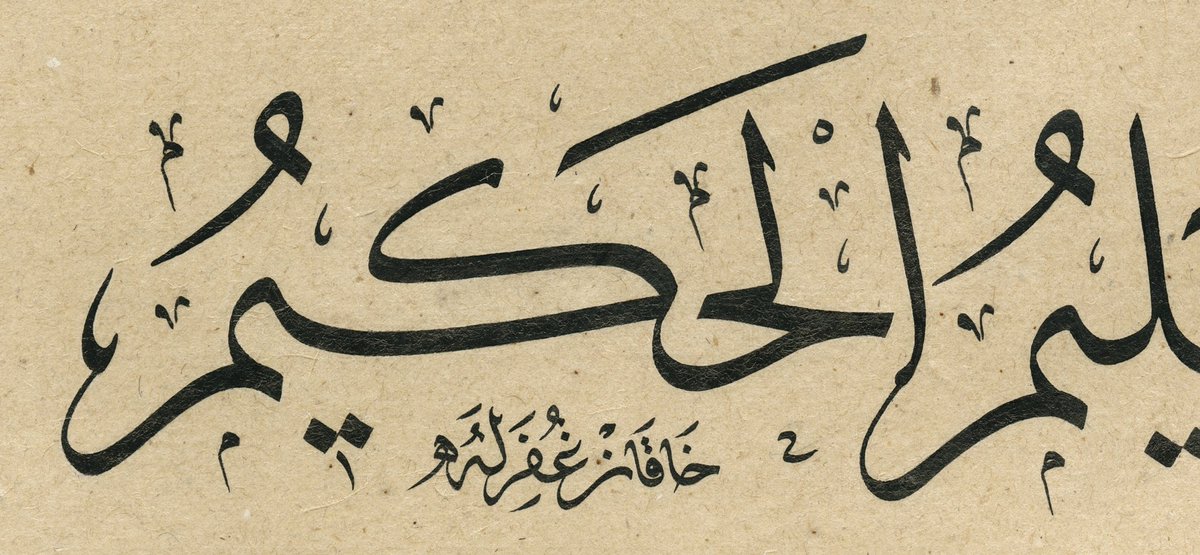 ليمُ الْحَكِيمُ
خَاقَانْ غُفِرَلَهُ